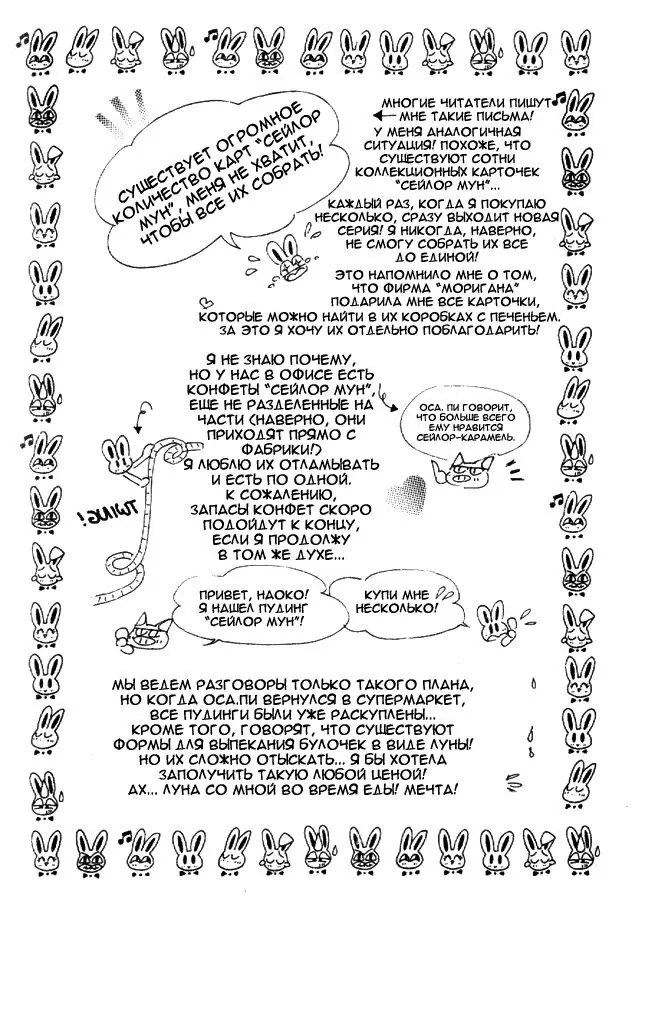 СУЩЕСТВУЕТ ОГРОМНОЕ
КОЛИЧЕСТВО КАРТ "СЕЙЛОР
МУН", МЕНЯ НЕ ХВАТИТ,
ЧТОБЫ ВСЕ ИХ СОБРАТЬ!
МНОГИЕ ЧИТАТЕЛИ ПИШУТ
МНЕ ТАКИЕ ПИСЬМА!
У МЕНЯ АНАЛОГИЧНАЯ
СИТУАЦИЯ! ПОХОЖЕ, ЧТО
СУЩЕСТВУЮТ СОТНИ
КОЛЛЕКЦИОННЫХ КАРТОЧЕК
"СЕЙЛОР МУН"...
КАЖДЫЙ РАЗ, КОГДА Я ПОКУПАЮ
НЕСКОЛЬКО, СРАЗУ ВЫХОДИТ НОВАЯ
СЕРИЯ! Я НИКОГДА, НАВЕРНО,
НЕ СМОГУ СОБРАТЬ ИХ ВСЕ
ДО ЕДИНОЙ!
ЭТО НАПОМНИЛО МНЕ О ТОМ,
ЧТО ФИРМА "МОРИГАНА"
ПОДАРИЛА МНЕ ВСЕ КАРТОЧКИ,
КОТОРЫЕ МОЖНО НАЙТИ В ИХ КОРОБКАХ С ПЕЧЕНЬЕМ.
ЗА ЭТО Я ХОЧУ ИХ ОТДЕЛЬНО ПОБЛАГОДАРИТЬ!
Я НЕ ЗНАЮ ПОЧЕМУ,
НО У НАС В ОФИСЕ ЕСТЬ
КОНФЕТЫ "СЕЙЛОР МУН",
ЕЩЕ НЕ РАЗДЕЛЕННЫЕ НА
ЧАСТИ (НАВЕРНО, ОНИ
ПРИХОДЯТ ПРЯМО С
ФАБРИКИ!)
Я ЛЮБЛЮ ИХ ОТЛАМЫВАТЬ
И ЕСТЬ ПО ОДНОЙ.
К СОЖАЛЕНИЮ,
ЗАПАСЫ КОНФЕТ СКОРО
ПОДОЙДУТ К КОНЦУ,
ЕСЛИ Я ПРОДОЛЖУ
В ТОМ ЖЕ ДУХЕ...
ОСА. ПИ ГОВОРИТ,
ЧТО БОЛЬШЕ ВСЕГО
ЕМУ НРАВИТСЯ
СЕЙЛОР-КАРАМЕЛЬ.
TWIUG!
ПРИВЕТ, НАОКО!
Я НАШЕЛ ПУДИНГ
"СЕЙЛОР МУН"!
КУПИ МНЕ
НЕСКОЛЬКО!
МЫ ВЕДЕМ РАЗГОВОРЫ ТОЛЬКО ТАКОГО ПЛАНА,
НО КОГДА ОСА.ПИ ВЕРНУЛСЯ В СУПЕРМАРКЕТ,
ВСЕ ПУДИНГИ БЫЛИ УЖЕ РАСКУПЛЕНЫ...
КРОМЕ ТОГО, ГОВОРЯТ, ЧТО СУЩЕСТВУЮТ
ФОРМЫ ДЛЯ ВЫПЕКАНИЯ БУЛОЧЕК В ВИДЕ ЛУНЫ!
НО ИХ СЛОЖНО ОТЫСКАТЬ... Я БЫ ХОТЕЛА
ЗАПОЛУЧИТЬ ТАКУЮ ЛЮБОЙ ЦЕНОЙ!
АХ... ЛУНА СО МНОЙ ВО ВРЕМЯ ЕДЫ! МЕЧТА!